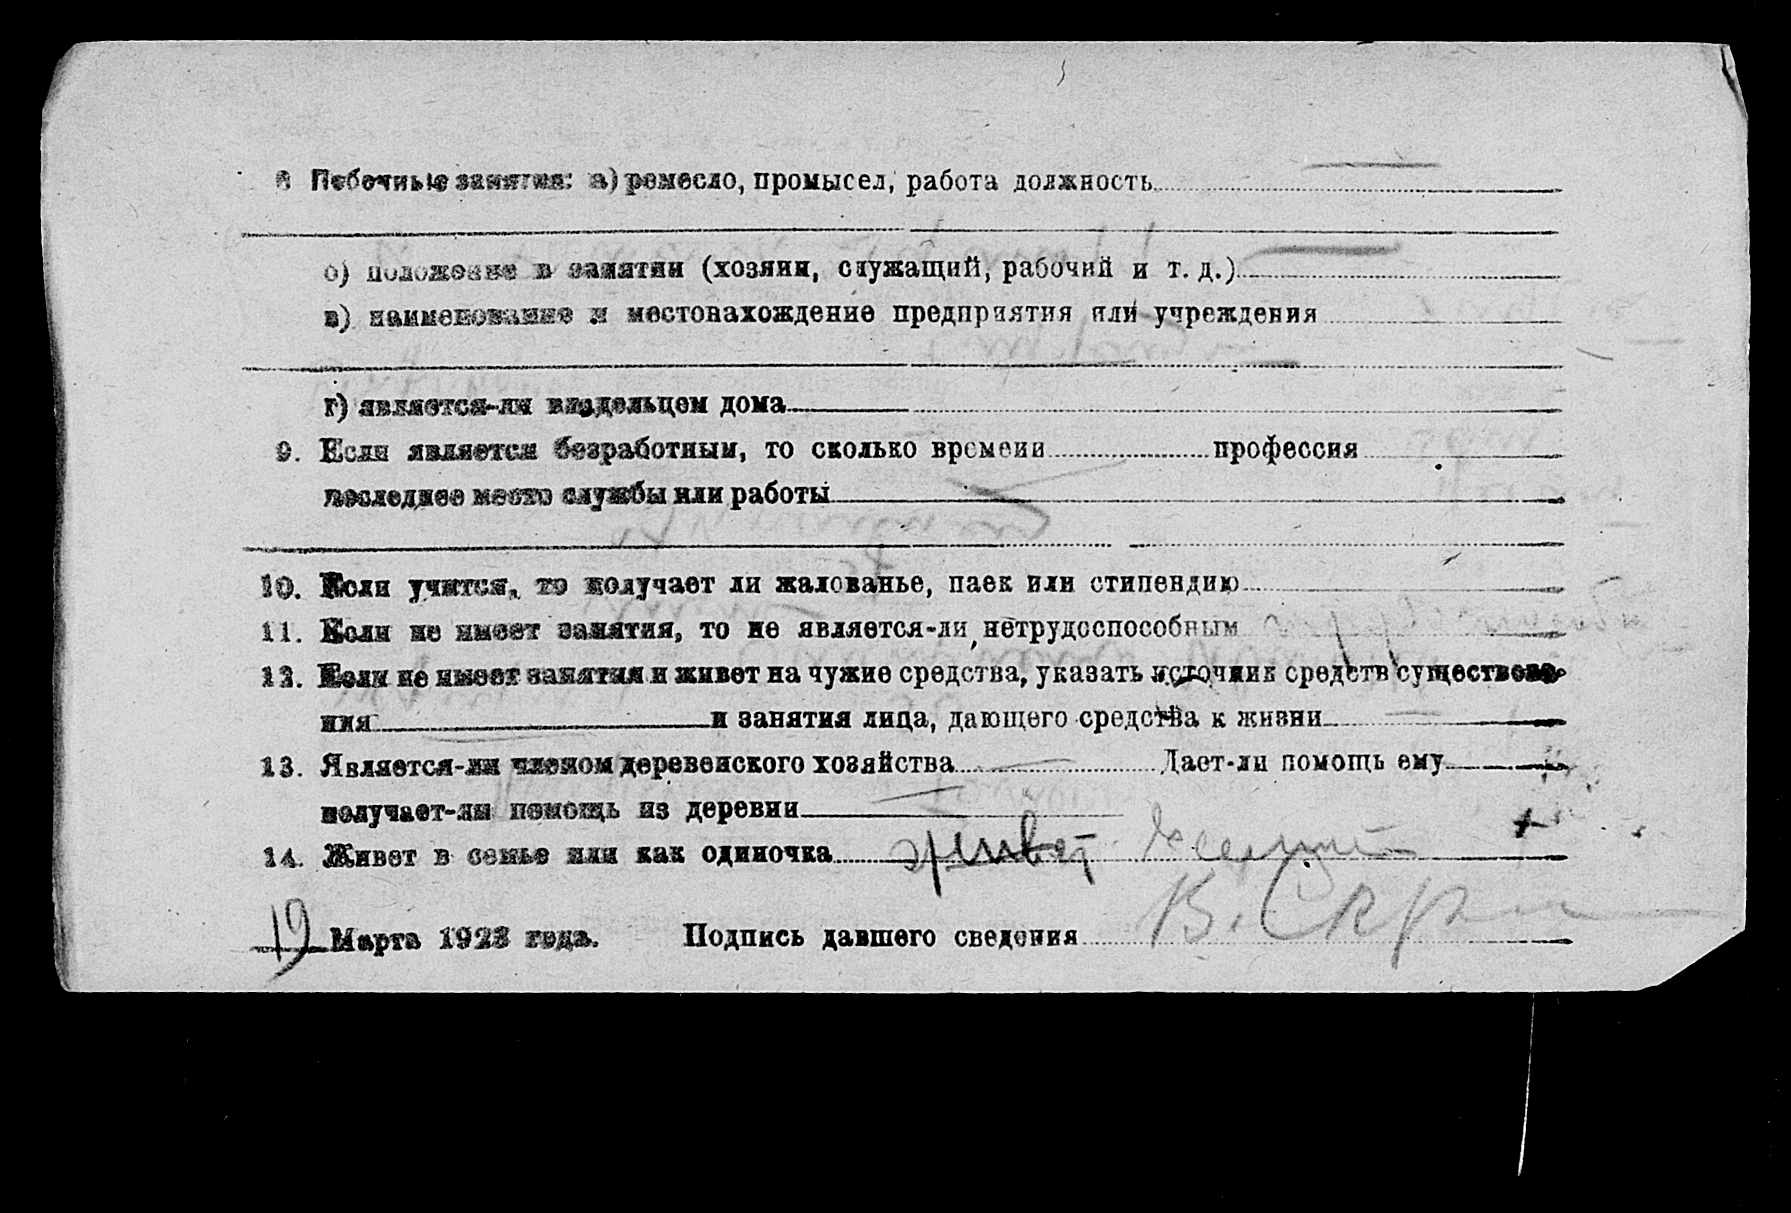 8 Побочные занятия: а) ремесло, промысел, работа должность
б) положение в занятии (хозяин, служащий, рабочий и т. д.)
в) наименование и местонахождение предприятия или учреждения
г) является-ли владельцем дома
9. Если является безработным, то сколько времени профессия
последнее место службы или работы
10. Если учится, то получает ли жалованье, паек или стипендию
11. Если не имеет занятия, то не является-ли нетрудоспособным
12. Если не имеет занятия и живет на чужие средства, указать источник средств существова-
ния и занятия лица, дающего средства к жизни
13. Является-ли членом деревенского хозяйства Дает-ли помощь ему
получает-ли помощь из деревни
14. Живет в семье или как одиночка живет
19 Марта 1923 года. Подпись давшего сведения В.